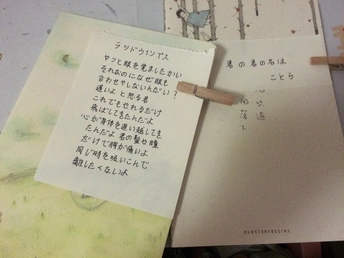 ラッドウィンプス
やっと眼を覚ましたかい
それなのになぜ眼も
合わせやしないんだい？
遅いよと怒る君
これでもやれるだけ
飛ばしてきたんだよ
心が身体を追い越してき
たんだよ 君の髪や瞳
だけで胸が痛いよ
同じ時を吸いこんで
離したくないよ
君の名は
ことら
OURSTORYBEGINS